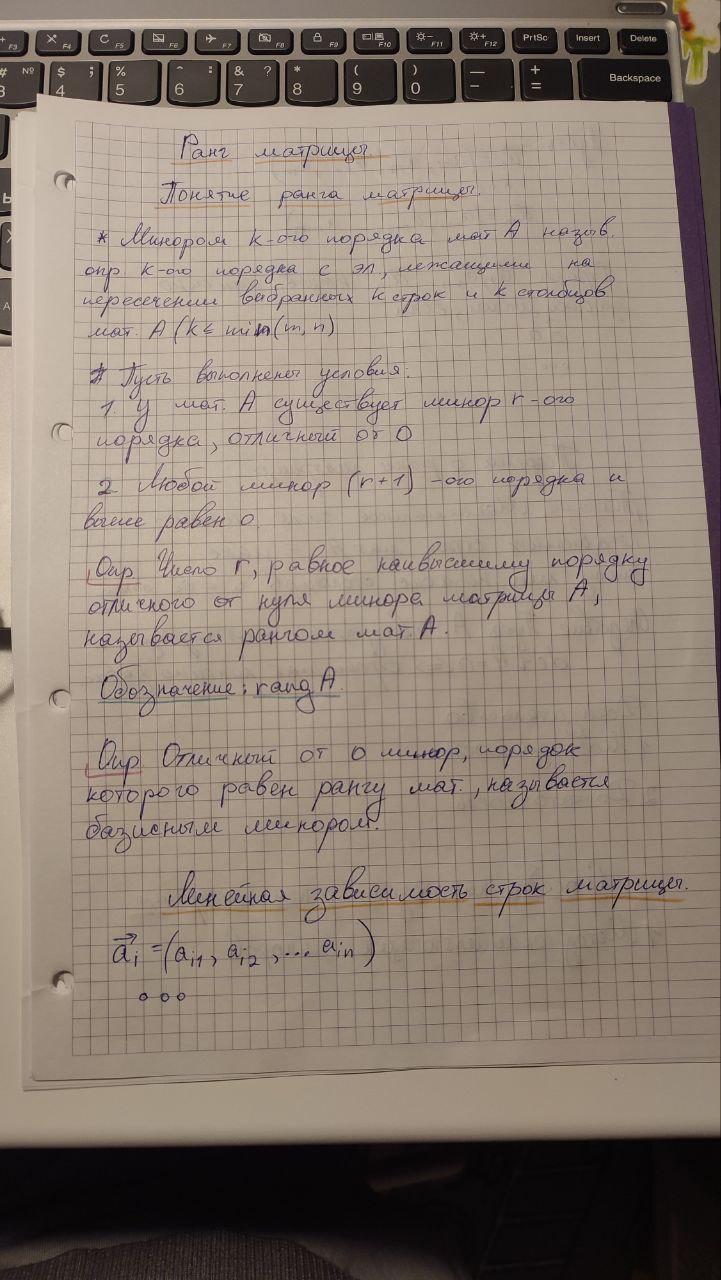 F3 F4 F5 F6 F7 F8 F9 F10 F11 F12 PrtSc Insert Delete
# № 3 $ ; 4 % : 5 ^ : 6 & ? 7 * 8 ( 9 ) 0 — - + = Backspace
Ранг матрицы
Понятие ранга матрицы.
* Минором k-ого порядка мат A назыв.
опр k-ого порядка с эл, лежащими на
пересечении выбранных k строк и k столбцов
мат. A (k ≤ min(m, n)
* Пусть выполнены условия:
1. У мат. A существует минор r-ого
порядка, отличный от 0
2 Любой минор (r+1)-ого порядка и
выше равен 0.
Опр Число r, равное наивысшему порядку
отличного от нуля минора матрицы A,
называется рангом мат A.
Обозначение: rang A.
Опр Отличный от 0 минор, порядок
которого равен рангу мат., называется
базисным минором.
Линейная зависимость строк матрицы.
a⃗ᵢ = (aᵢ₁, aᵢ₂, ... aᵢₙ)
∘∘∘